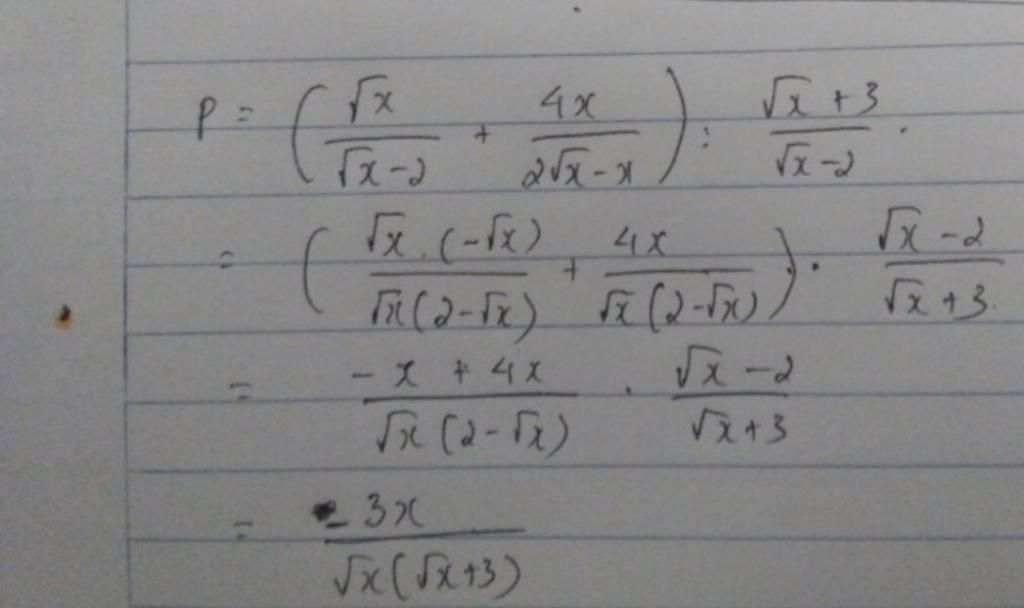 P = ( √x / (√x - 2) + 4x / (2√x - x) ) : (√x + 3) / (√x - 2) .
= ( √x . (-√x) / (√x(2-√x)) + 4x / (√x(2-√x)) ) . (√x - 2) / (√x + 3).
= (-x + 4x) / (√x(2-√x)) . (√x - 2) / (√x+3)
= -3x / (√x(√x+3))